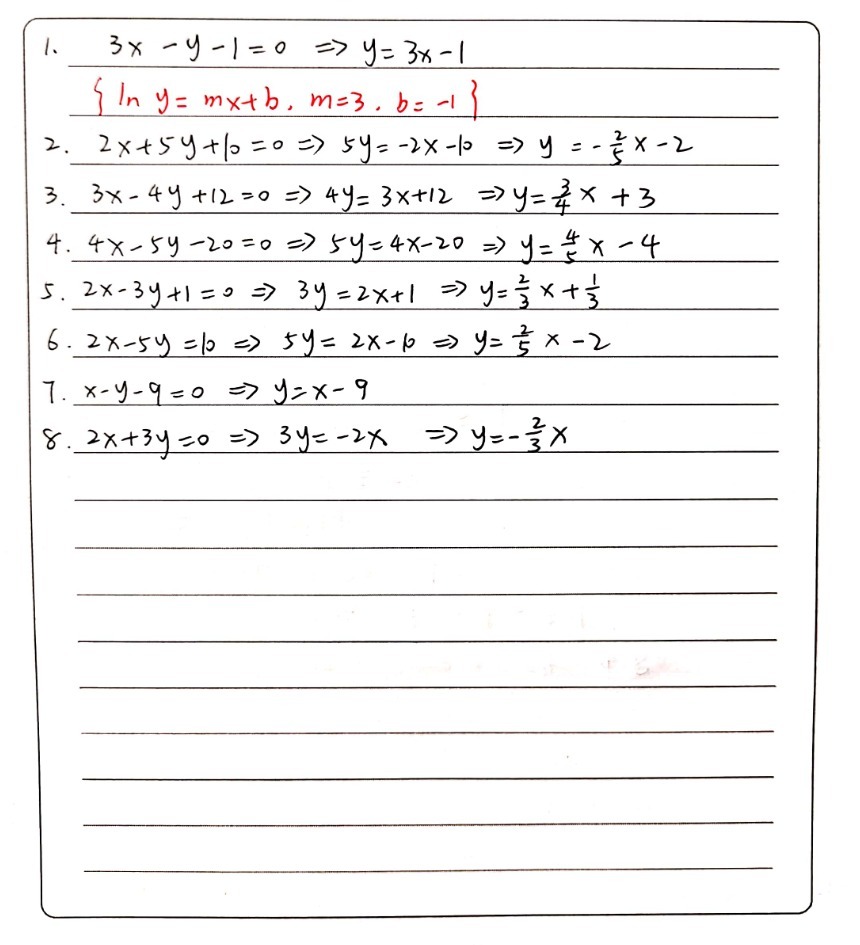 1. 3x - y - 1 = 0 => y = 3x - 1
{ In y = mx + b, m = 3, b = -1 }
2. 2x + 5y + 10 = 0 => 5y = -2x - 10 => y = -2/5 x - 2
3. 3x - 4y + 12 = 0 => 4y = 3x + 12 => y = 3/4 x + 3
4. 4x - 5y - 20 = 0 => 5y = 4x - 20 => y = 4/5 x - 4
5. 2x - 3y + 1 = 0 => 3y = 2x + 1 => y = 2/3 x + 1/3
6. 2x - 5y = 10 => 5y = 2x - 10 => y = 2/5 x - 2
7. x - y - 9 = 0 => y = x - 9
8. 2x + 3y = 0 => 3y = -2x => y = -2/3 x